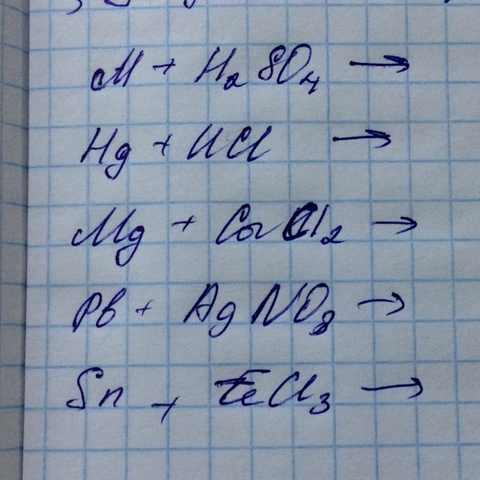 M + H₂SO₄ →
Hg + HCl →
Mg + CaCl₂ →
Pb + AgNO₃ →
Sn + FeCl₃ →